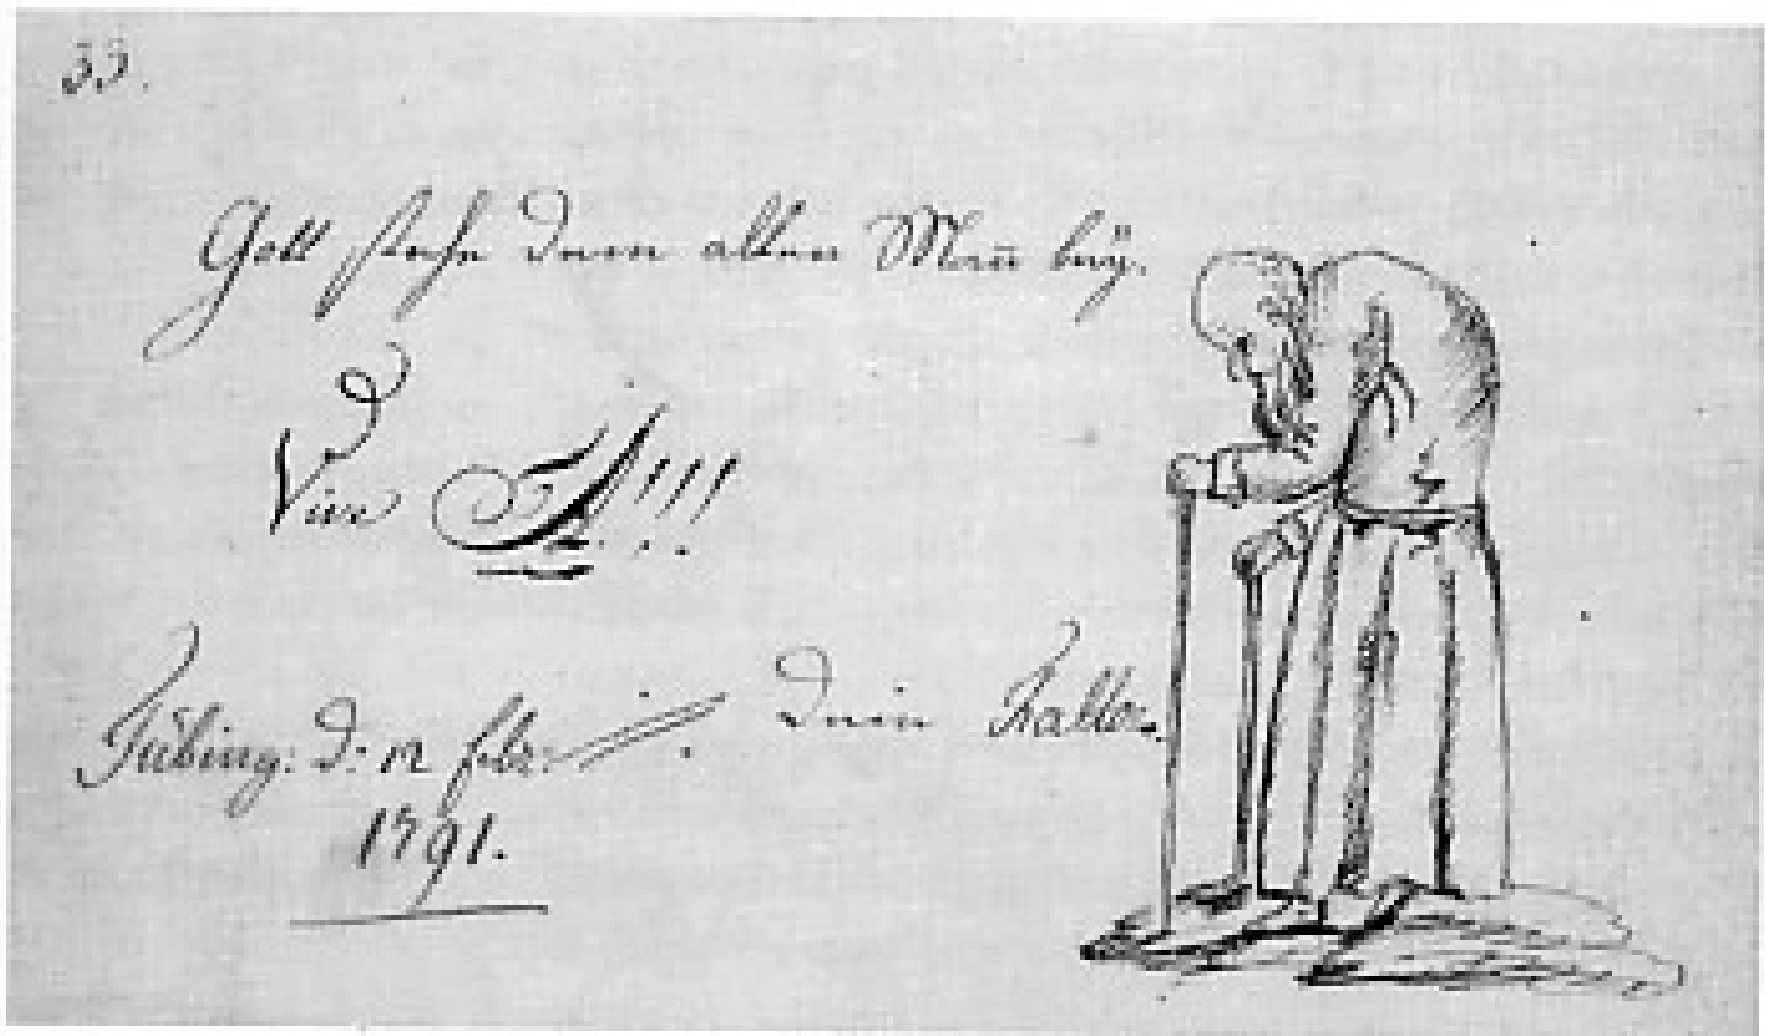 33.
Gott stehe dem alten Mañ bey.
Vive A!!!
Tübing: d: 12 febr: Dein Fallot.
1791.